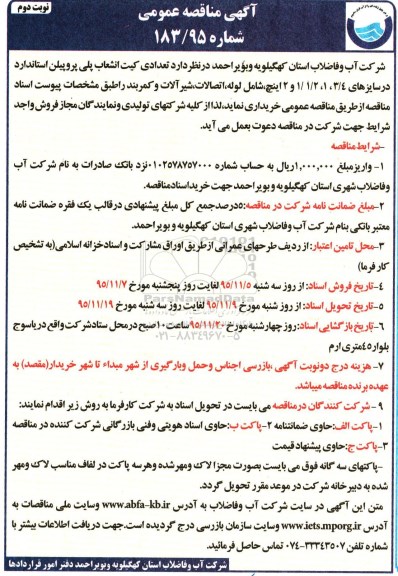 نوبت دوم
آگهی مناقصه عمومی
شماره ۱۸۳/۹۵
شرکت آب وفاضلاب استان کهگیلویه وبویراحمد درنظردارد تعدادی کیت انشعاب پلی پروپیلن استاندارد
درسایزهای ۳/۴، ۱، ۱/۲ ۱ و ۲ اینچ،شامل لوله،اتصالات،شیرآلات وکمربند راطبق مشخصات پیوست اسناد
مناقصه ازطریق مناقصه عمومی خریداری نماید،لذا از کلیه شرکتهای تولیدی ونمایندگان مجاز فروش واجد
شرایط جهت شرکت در مناقصه دعوت بعمل می آید.
-شرایط مناقصه
۱- واریزمبلغ ۱,۰۰۰,۰۰۰ریال به حساب شماره ۰۱۰۲۵۷۸۷۵۷۰۰۰نزد بانک صادرات به نام شرکت آب
وفاضلاب شهری استان کهگیلویه و بویراحمد جهت خریداسنادمناقصه.
۲-مبلغ ضمانت نامه شرکت در مناقصه:۵درصدجمع کل مبلغ پیشنهادی درقالب یک فقره ضمانت نامه
معتبربانکی بنام شرکت آب وفاضلاب شهری استان کهگیلویه و بویراحمد.
۳-محل تامین اعتبار: از ردیف طرحهای عمرانی ازطریق اوراق مشارکت و اسنادخزانه اسلامی(به تشخیص
کارفرما)
۴-تاریخ فروش اسناد: از روز سه شنبه ۹۵/۱۱/۵ لغایت روز پنجشنبه مورخ ۹۵/۱۱/۷
۵-تاریخ تحویل اسناد: از روز شنبه مورخ ۹۵/۱۱/۹ لغایت روز سه شنبه مورخ ۹۵/۱۱/۱۹
۶-تاریخ بازگشایی اسناد: روز چهارشنبه مورخ ۹۵/۱۱/۲۰ساعت ۱۰صبح درمحل ستادشرکت واقع دریاسوج
بلوار۴۵متری ارم
۷- هزینه درج دونوبت آگهی ،بازرسی اجناس وحمل وبارگیری از شهر مبداء تا شهر خریدار(مقصد) به
عهده برنده مناقصه میباشد.
۹- شرکت کنندگان درمناقصه می بایست در تحویل اسناد به شرکت کارفرما به روش زیر اقدام نمایند:
۱-پاکت الف:حاوی ضمانتنامه ۲-پاکت ب:حاوی اسناد هویتی وفنی بازرگانی شرکت کننده در مناقصه
۳-پاکت ج:حاوی پیشنهاد قیمت
-پاکتهای سه گانه فوق می بایست بصورت مجزا لاک ومهرشده وهرسه پاکت در لفاف مناسب لاک ومهر
شده به دبیرخانه شرکت در موعد مقرر تحویل گردد.
متن این آگهی در سایت شرکت آب وفاضلاب به آدرس www.abfa-kb.ir وسایت ملی مناقصات به
آدرس www.iets.mporg.ir وسایت سازمان بازرسی درج گردیده است.جهت دریافت اطلاعات بیشتر با
شماره تلفن ۳۳۳۴۳۵۰۷-۰۷۴ تماس حاصل فرمائید.
شرکت آب وفاضلاب استان کهگیلویه وبویراحمد دفتر امور قراردادها